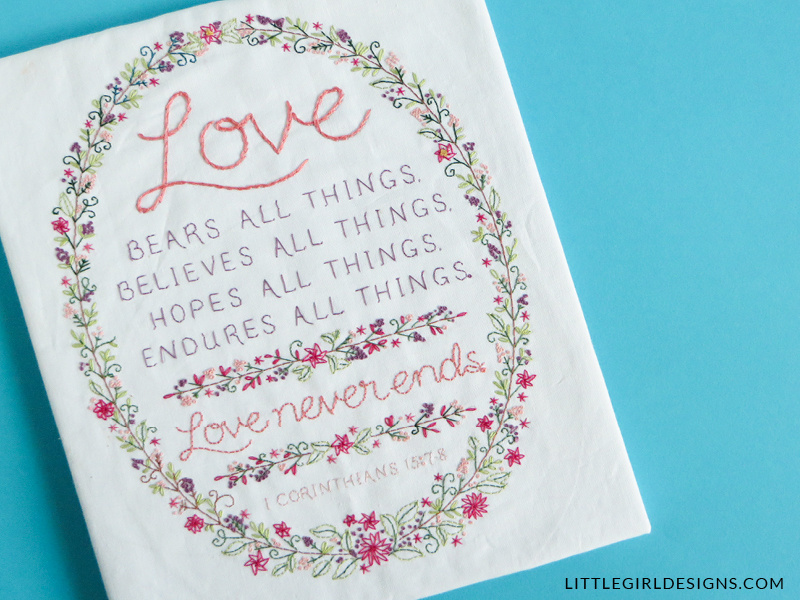 Love
BEARS ALL THINGS,
BELIEVES ALL THINGS,
HOPES ALL THINGS,
ENDURES ALL THINGS.
Love never ends.
1 CORINTHIANS
LITTLEGIRLDESIGNS.COM